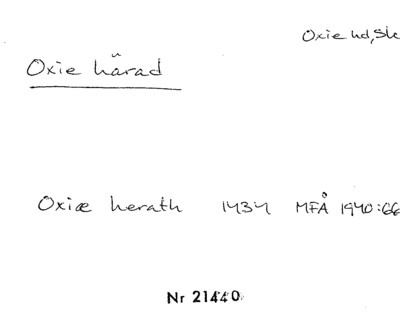 Oxie hd, Sk
Oxie härad
Oxiæ herath 1434 MFÅ 1940:66
Nr 21440